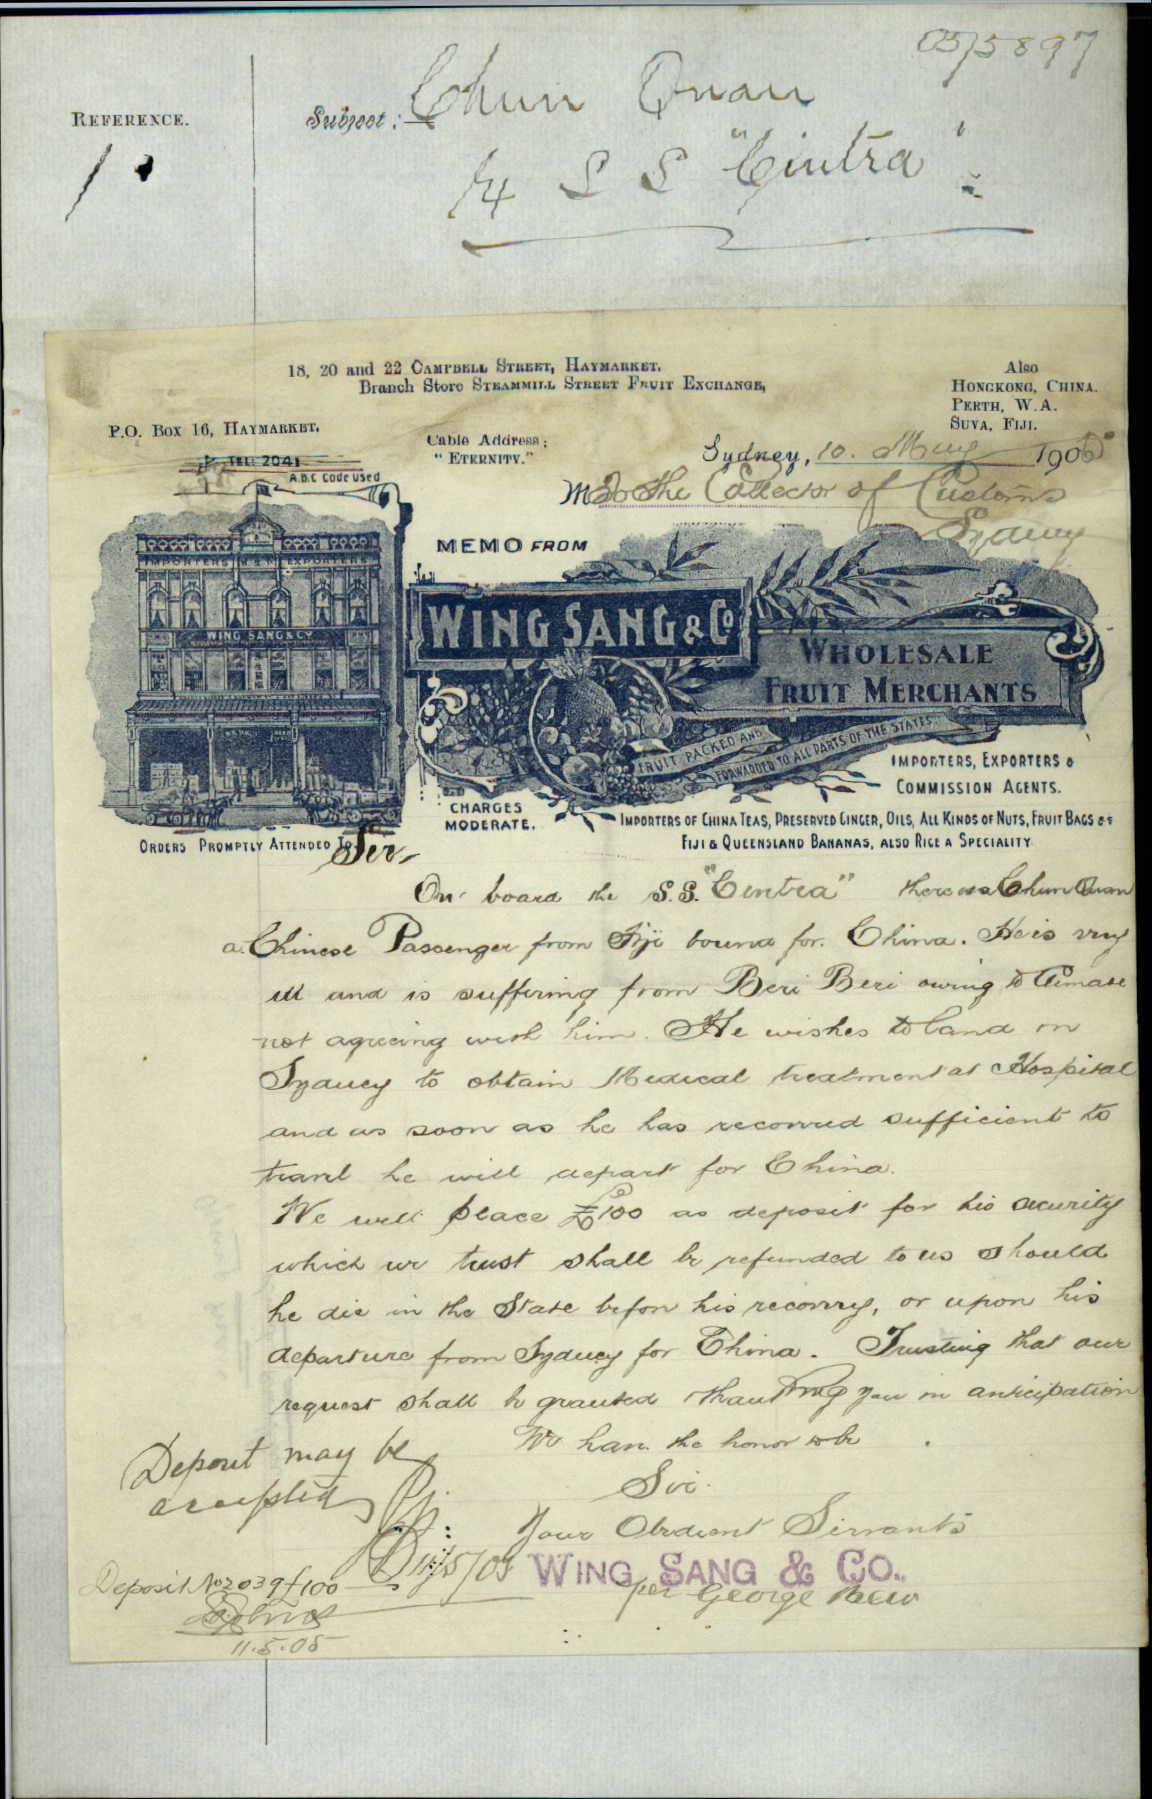 05/5897
REFERENCE.
Subject: Chun Quan
1
S S "Cintra"
18, 20 and 22 CAMPBELL STREET, HAYMARKET.
Branch Store STEAMMILL STREET FRUIT EXCHANGE,
Also
HONGKONG, CHINA.
PERTH, W.A.
SUVA, FIJI.
P.O. BOX 16, HAYMARKET.
Cable Address:
"ETERNITY."
TEL: 2041
A.B.C Code used
Sydney, 10. May 1905
M To the Collector of Customs
Sydney
MEMO FROM
IMPORTERS EXPORTERS
WING SANG & CY
WING SANG & Co
WHOLESALE
FRUIT MERCHANTS
FRUIT PACKED AND
FORWARDED TO ALL PARTS OF THE STATES
IMPORTERS, EXPORTERS &
COMMISSION AGENTS.
CHARGES
MODERATE.
IMPORTERS OF CHINA TEAS, PRESERVED GINGER, OILS, ALL KINDS OF NUTS, FRUIT BAGS &c
FIJI & QUEENSLAND BANANAS, ALSO RICE A SPECIALITY
ORDERS PROMPTLY ATTENDED TO
Sir,
On board the S.S. "Cintra" there is a Chun Quan
a Chinese Passenger from Fiji bound for China. He is very
ill and is suffering from Beri Beri owing to Climate
not agreeing with him. He wishes to land in
Sydney to obtain Medical treatment at Hospital
and as soon as he has recovered sufficient to
travel he will depart for China.
We will place £100 as deposit for his security
which we trust shall be refunded to us should
he die in the State before his recovery, or upon his
departure from Sydney for China. Trusting that our
request shall be granted thanking you in anticipation
We have the honor to be
Sir.
Your Obedient Servants
WING SANG & CO.
per George Bew
Deposit may be
accepted
11/5/05
Deposit No 2039 £100
11.5.05